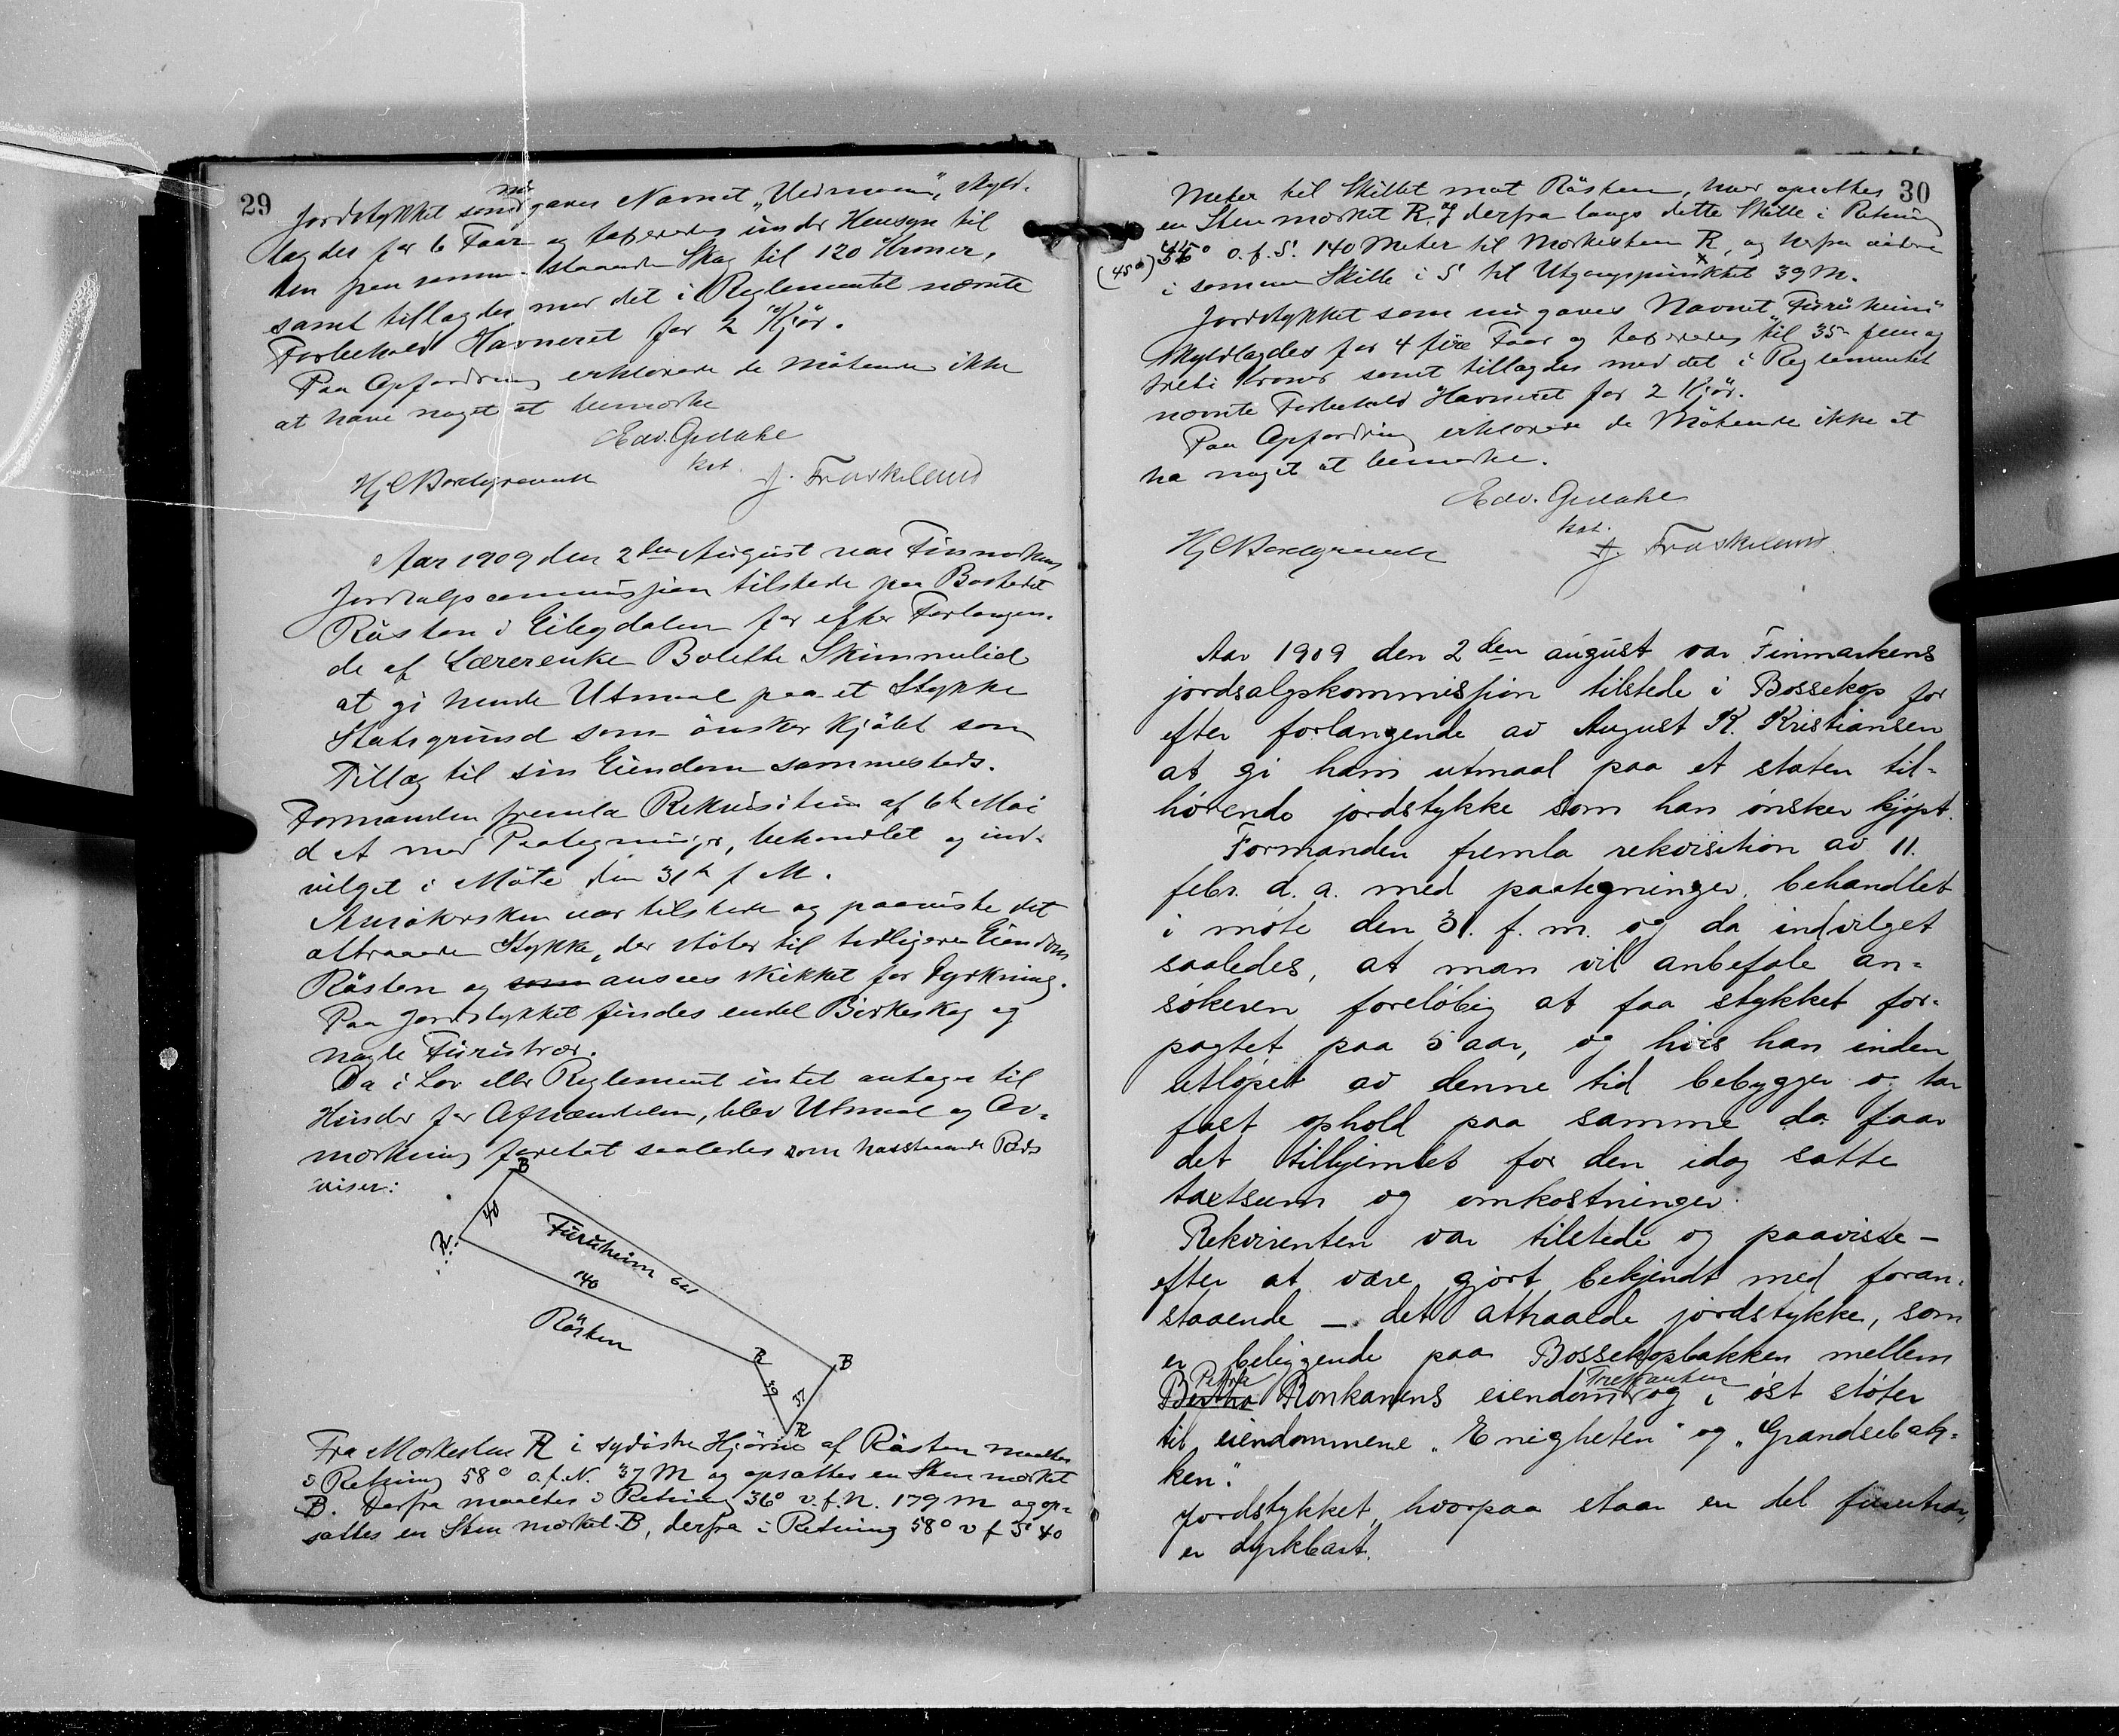 29
Jordstykket som nu gaves Navnet „Uermoen“, skyld-
lagdes for 6 Faar og taxeredes under Hensyn til
den paa samme staaende Skog til 120 Kroner,
samt tillagdes med det i Reglementet nævnte
Forbehold Havneret for 2 Kjør.
Paa Opfordring erklærede de mötende ikke
at have noget at bemærke
Edv. Gedahl
kst.
Hj C Borchgrevink J. Fraskelund
Aar 1909 den 2den August var Finmarkens
Jordsalgscommission tilstede paa Bostedet
Råsten i Eibydalen for efter Forlangen-
de af Lærerenke Bolette Skimmelid
at gi hende Utmaal paa et Stykke
Statsgrund som önskes kjöbt som
Tillæg til sin Eiendom sammesteds.
Formanden fremla Rekvisition af 6te Mai
d A med Paategninger, behandlet og ind-
vilget i Möte den 31te f M.
Ansökersken var tilstede og paaviste det
attraaede Stykke, der stöter til tidligere Eiendom
Råsten og som ansees skikket for Dyrkning.
Paa Jordstykket findes endel Birkeskog og
nogle Furutrær.
Da i Lov eller Reglement intet antages til
Hinder for Afhændelsen, blev Utmaal og Av-
mærkning foretat saaledes som hosstaaende Rids
viser:
B
40
R
Furuheim 179
140
Råsten
R
B
39
37
R
Fra Mærkesten R i sydöstre Hjörne af Råsten maaltes
i Retning 58° o.f.N. 37 M og opsattes en Sten mærket
B. Derfra maaltes i Retning 36° v.f.N. 179 M og op-
sattes en Sten mærket B, derfra i Retning 58° v f S 40
30
Meter til Skillet mot Råsten, hvor opsattes
en Sten mærket R og derfra langs dette Skille i Retning
(45°) 36° o.f.S. 140 Meter til Mærkesten R, og herfra videre
i samme Skille i S til Utgangspunktet 39 M.
Jordstykket som nu gaves Navnet „Furuheim“
skyldlagdes for 4 fire Faar og taxeredes til 35 fem og
treti Kroner samt tillagdes med det i Reglementet
nævnte Forbehold Havneret for 2 Kjør.
Paa Opfordring erklærede de Mötende ikke at
ha noget at bemærke.
Edv. Gedahl
kst.
Hj C Borchgrevink J. Fraskelund
Aar 1909 den 2den august var Finmarkens
jordsalgskommission tilstede i Bossekop for
efter forlangende av August K. Kristiansen
at gi ham utmaal paa et staten til-
hørende jordstykke som han ønsker kjøpt.
Formanden fremla rekvisition av 11.
febr. d. a. med paategninger, behandlet
i møte den 31. f. m. og da indvilget
saaledes, at man vil anbefale an-
søkeren foreløbig at faa stykket for-
pagtet paa 5 aar, og hvis han inden
utløpet av denne tid bebygger og tar
fast ophold paa samme da faar
det tilhjemlet for den idag satte
taxtsum og omkostninger.
Rekvirenten var tilstede og paaviste –
efter at være gjort bekjendt med foran-
staaende – det attraaede jordstykke, som
er beliggende paa Bossekopbakken mellem
Bertha Petra Ronkanens eiendom Trekanten og i øst støter
til eiendommene „Enigheten“ og „Grandsebak-
ken“.
Jordstykket, hvorpaa staar en del furutrær,
er dyrkbart.